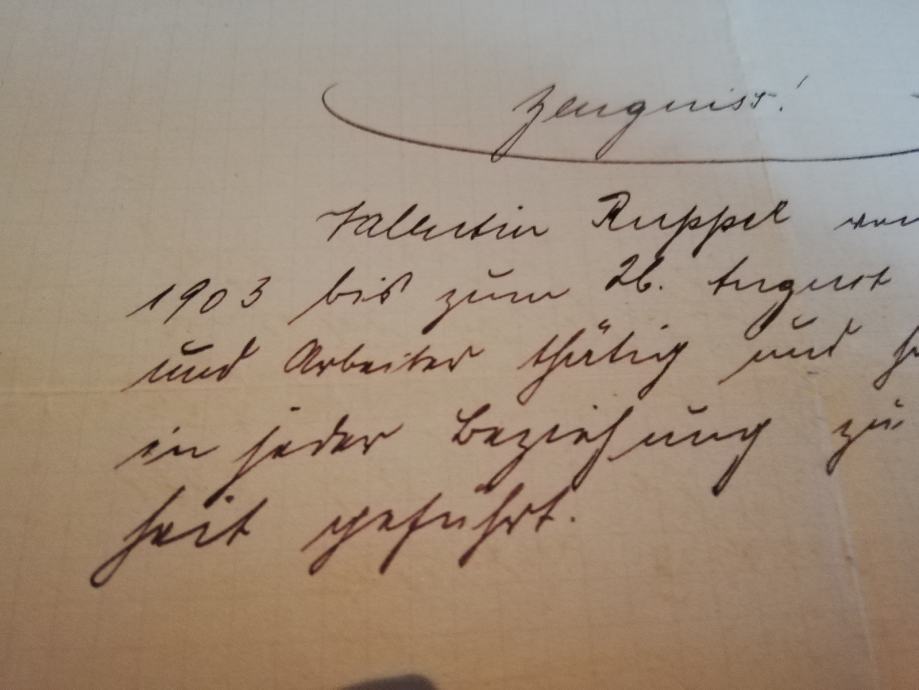 Zeugniss!
Valentin Ruppel von
1903 bis zum 26. August
und Arbeiter thätig und
in jeder Beziehung zu
heit geführt.